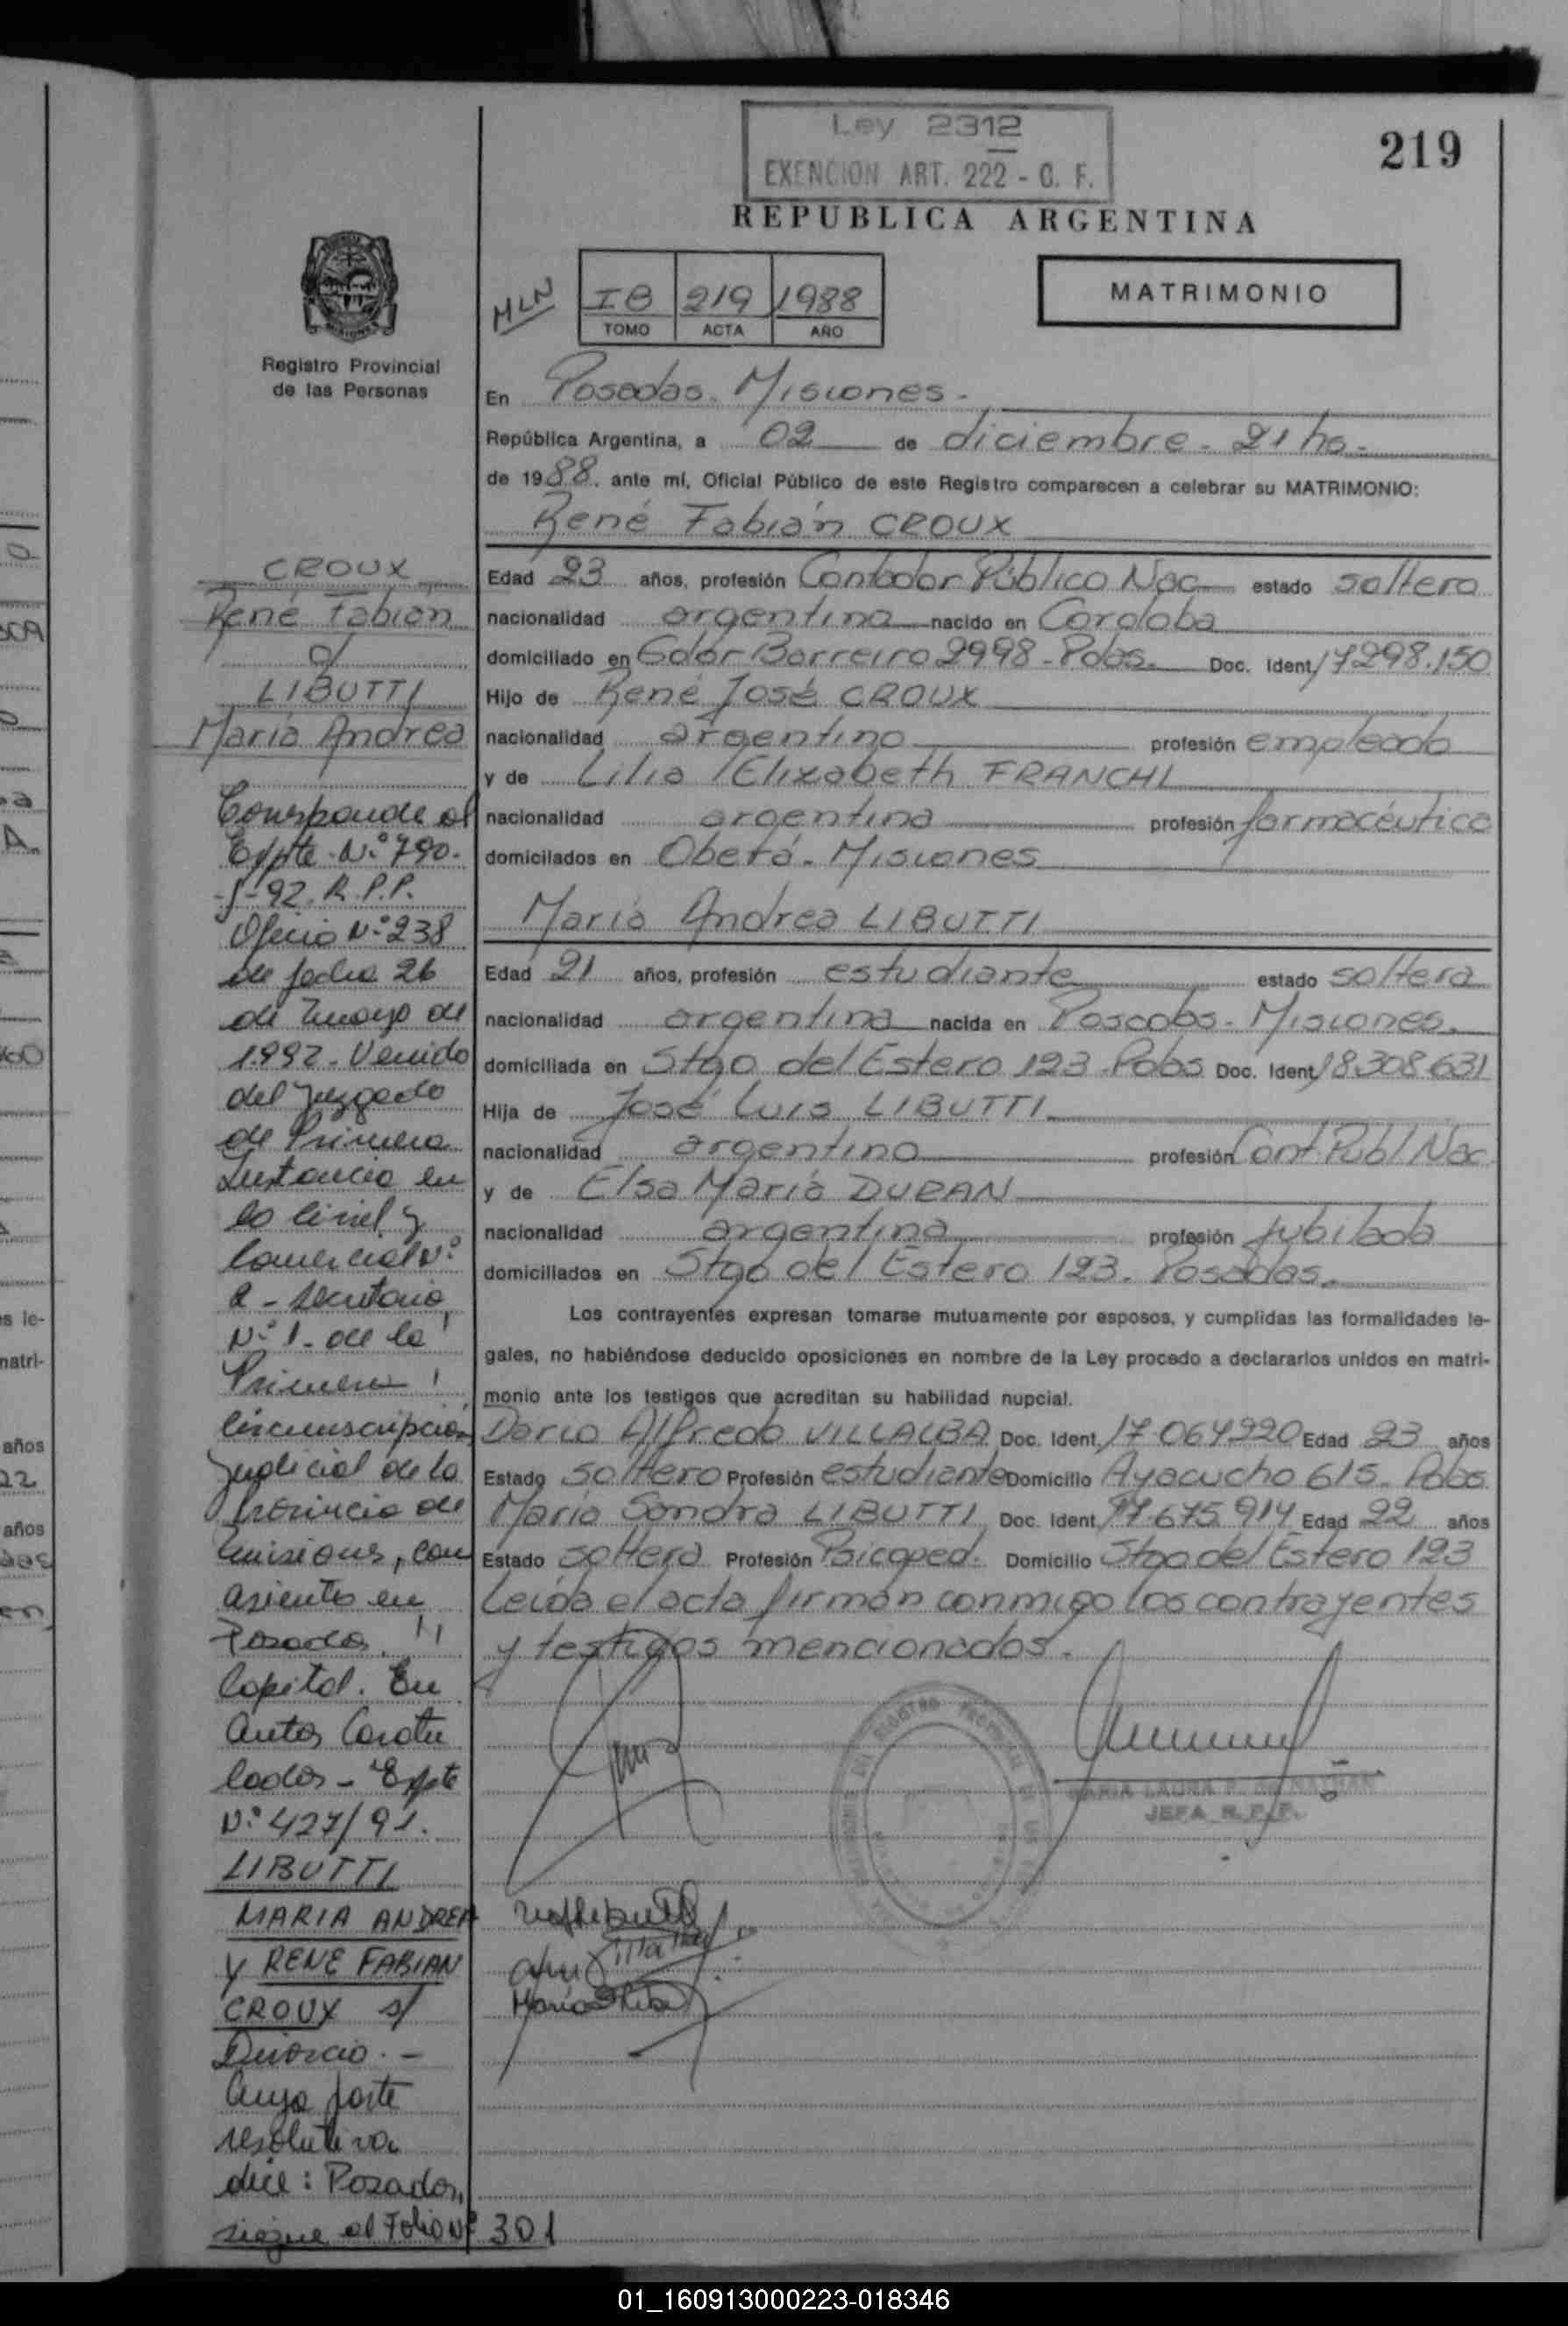 Ley 2312
EXENCION ART. 222 - C. F.
219
REPUBLICA ARGENTINA
MLN
IB 219 1988
TOMO ACTA AÑO
MATRIMONIO
Registro Provincial
de las Personas
En Posadas. Misiones.
República Argentina, a 02 de diciembre. 21 hs.
de 1988. ante mí, Oficial Público de este Registro comparecen a celebrar su MATRIMONIO:
René Fabián CROUX
Edad 23 años, profesión Contador Público Nac estado soltero
nacionalidad argentina nacido en Cordoba
domiciliado en Gdor Barreiro 2998 - Pdas. Doc. Ident 17298.150
Hijo de René José CROUX
nacionalidad argentino profesión empleado
y de Lilia Elizabeth FRANCHI
nacionalidad argentina profesión farmacéutica
domicilados en Oberá. Misiones
María Andrea LIBUTTI
Edad 21 años, profesión estudiante estado soltera
nacionalidad argentina nacida en Posadas. Misiones.
domiciliada en Stgo del Estero 123. Pdas Doc. Ident 18.308.631
Hija de José Luis LIBUTTI
nacionalidad argentino profesión Cont. Públ Nac.
y de Elsa María DURAN
nacionalidad argentina profesión jubilada
domiciliados en Stgo del Estero 123. Posadas.
Los contrayentes expresan tomarse mutuamente por esposos, y cumplidas las formalidades le-
gales, no habiéndose deducido oposiciones en nombre de la Ley procedo a declararlos unidos en matri-
monio ante los testigos que acreditan su habilidad nupcial.
Dario Alfredo VILLALBA Doc. Ident. 17.064220 Edad 23 años
Estado soltero Profesión estudiante Domicilio Ayacucho 615. Pdas
María Sandra LIBUTTI Doc. Ident. 17.675.914 Edad 22 años
Estado soltera Profesión Psicoped. Domicilio Stgo del Estero 123
Leída el acta firman conmigo los contrayentes
y testigos mencionados.
JEFA R.P.P.
CROUX
René Fabián
c/
LIBUTTI
María Andrea
Corresponde al
Expte. Nº 790-
-J-92. R.P.P.
Oficio Nº 238
de fecha 26
de marzo de
1.992. Venido
del Juzgado
de Primera
Instancia en
lo Civil y
Comercial Nº
2 - Secretaria
Nº 1 - de la
Primera
Circunscripción
Judicial de la
Provincia de
Misiones, con
asiento en
Posadas,
Capital. En
autos Caratu
lados - Expte
Nº 427/91.
LIBUTTI
MARIA ANDREA
Y RENE FABIAN
CROUX s/
Divorcio. -
Cuya parte
resolutiva
dice: Posadas,
sigue al Folio Nº 301
s le-
natri-
años
22
años
01_160913000223-018346